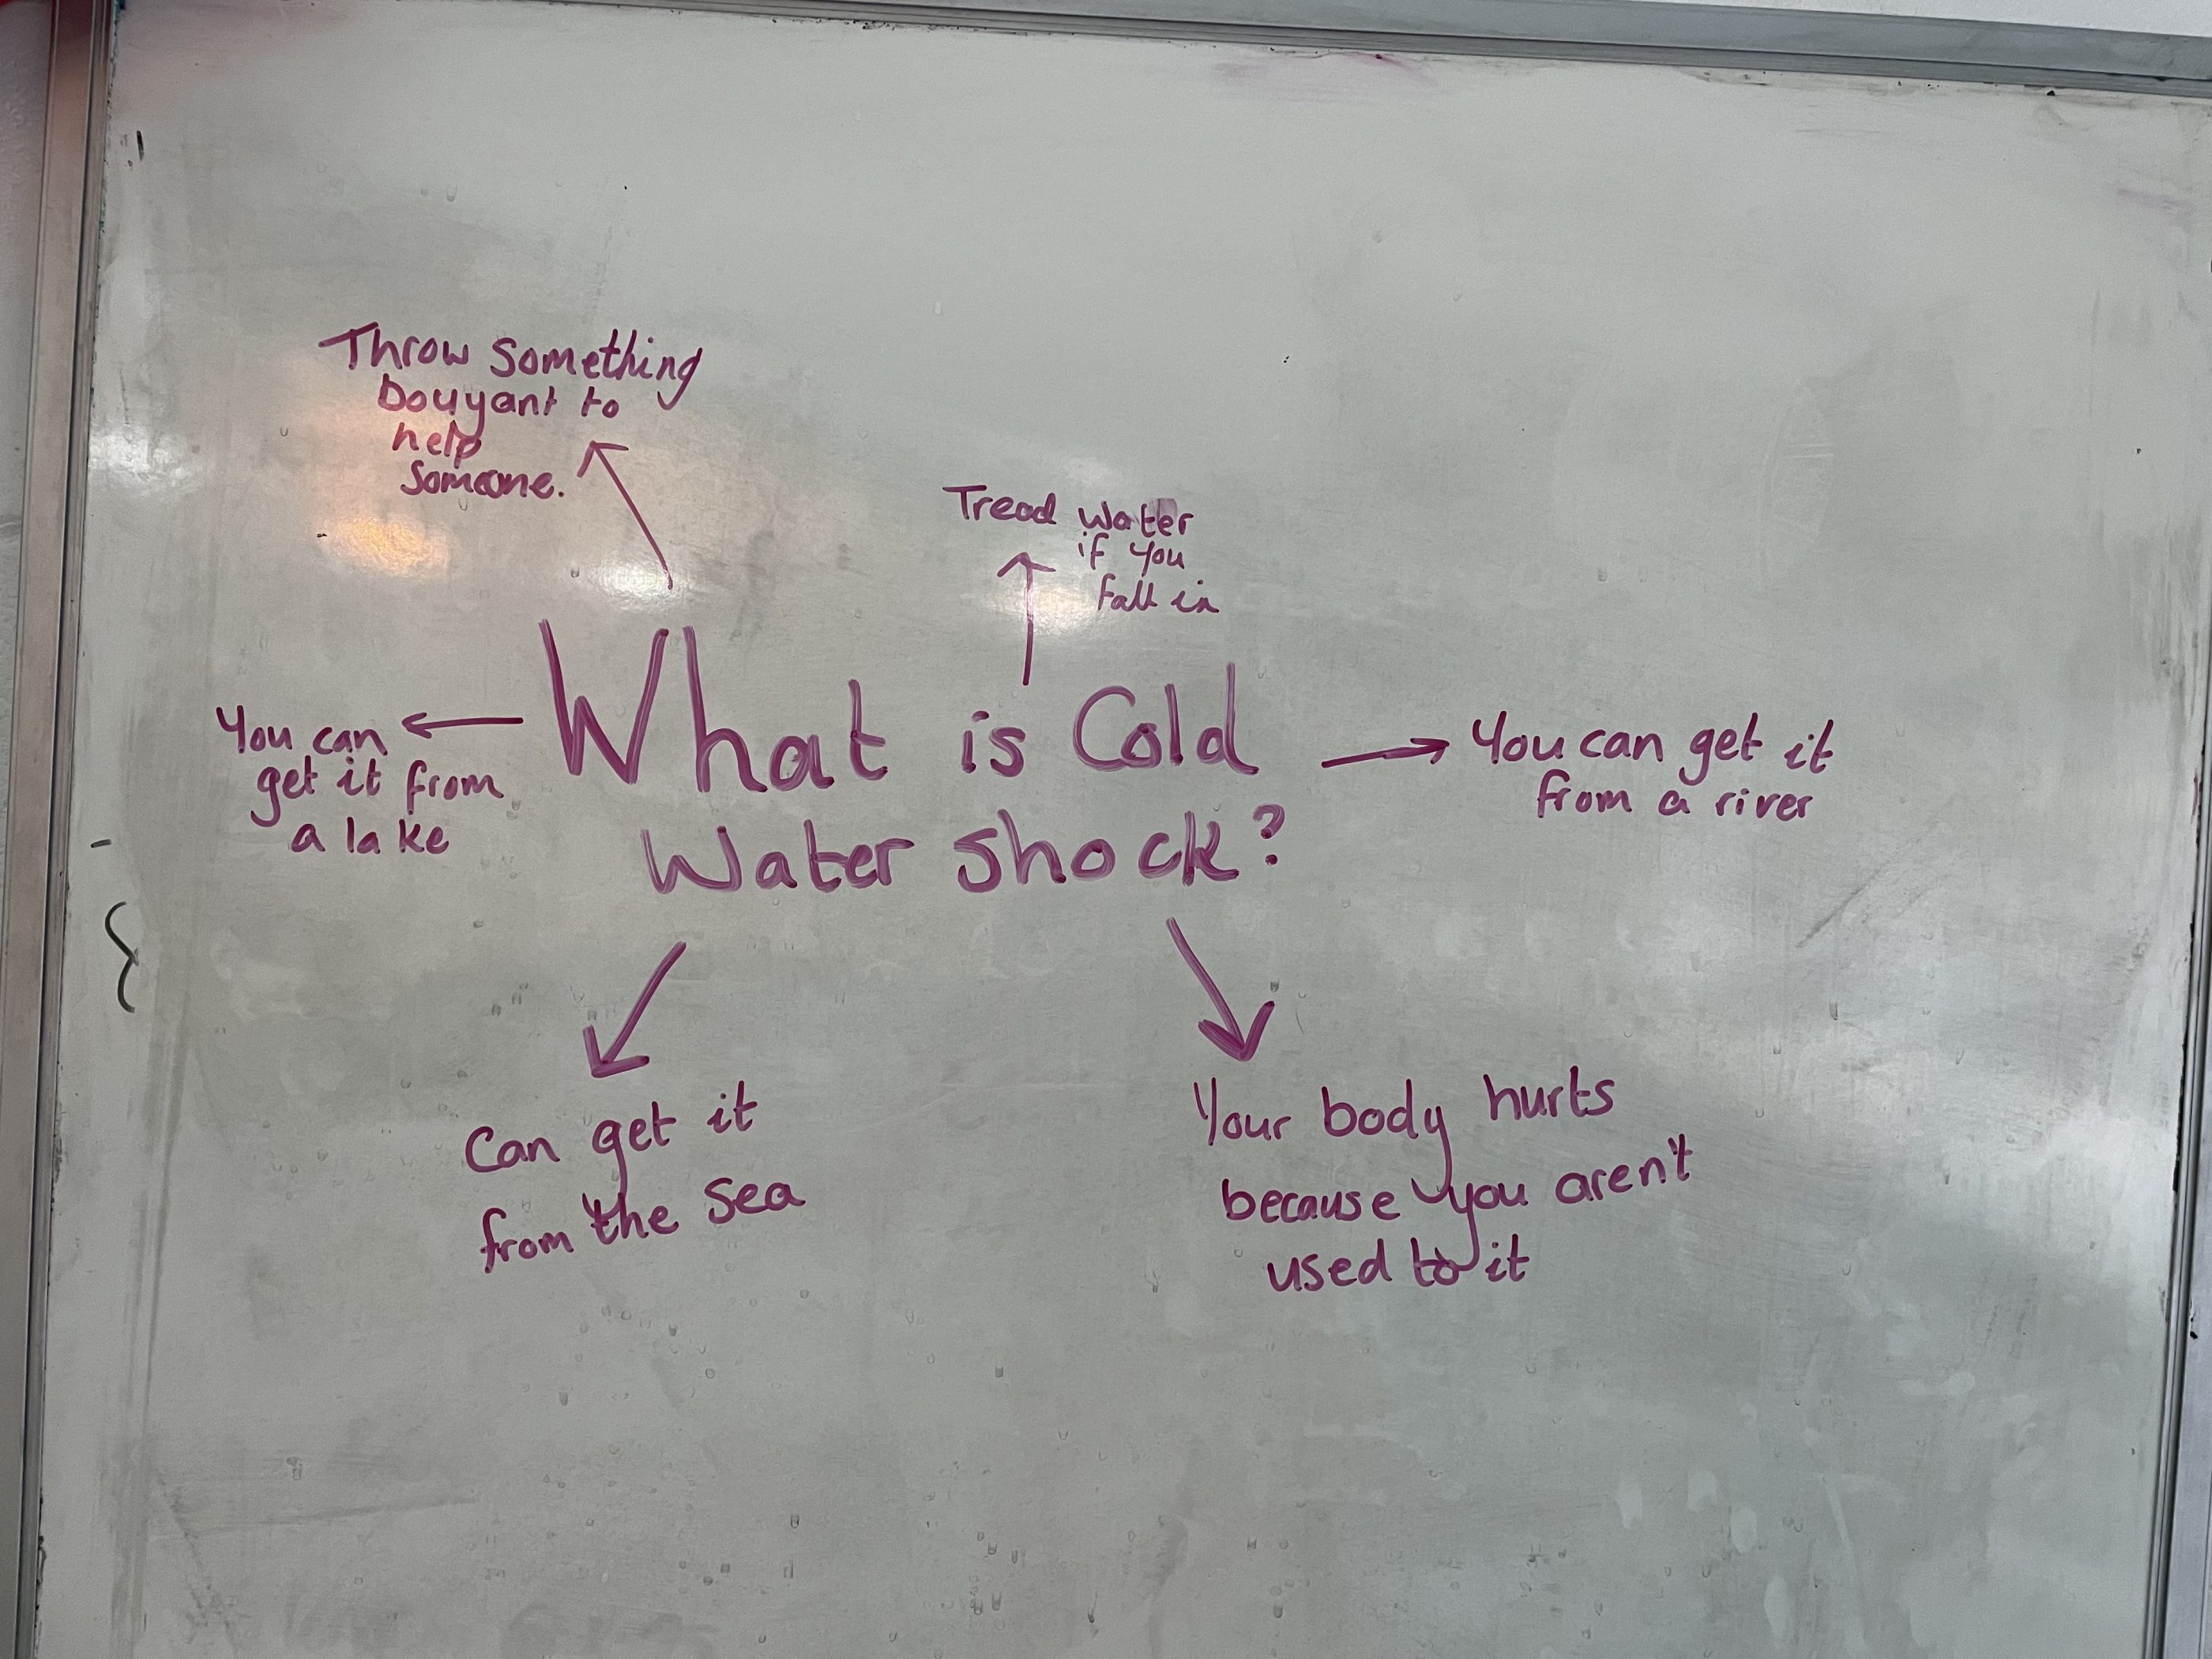 Throw something
bouyant to
help
someone.
Tread water
if you
fall in
What is Cold
Water shock?
You can
get it from
a lake
You can get it
from a river
Can get it
from the sea
Your body hurts
because you aren't
used to it